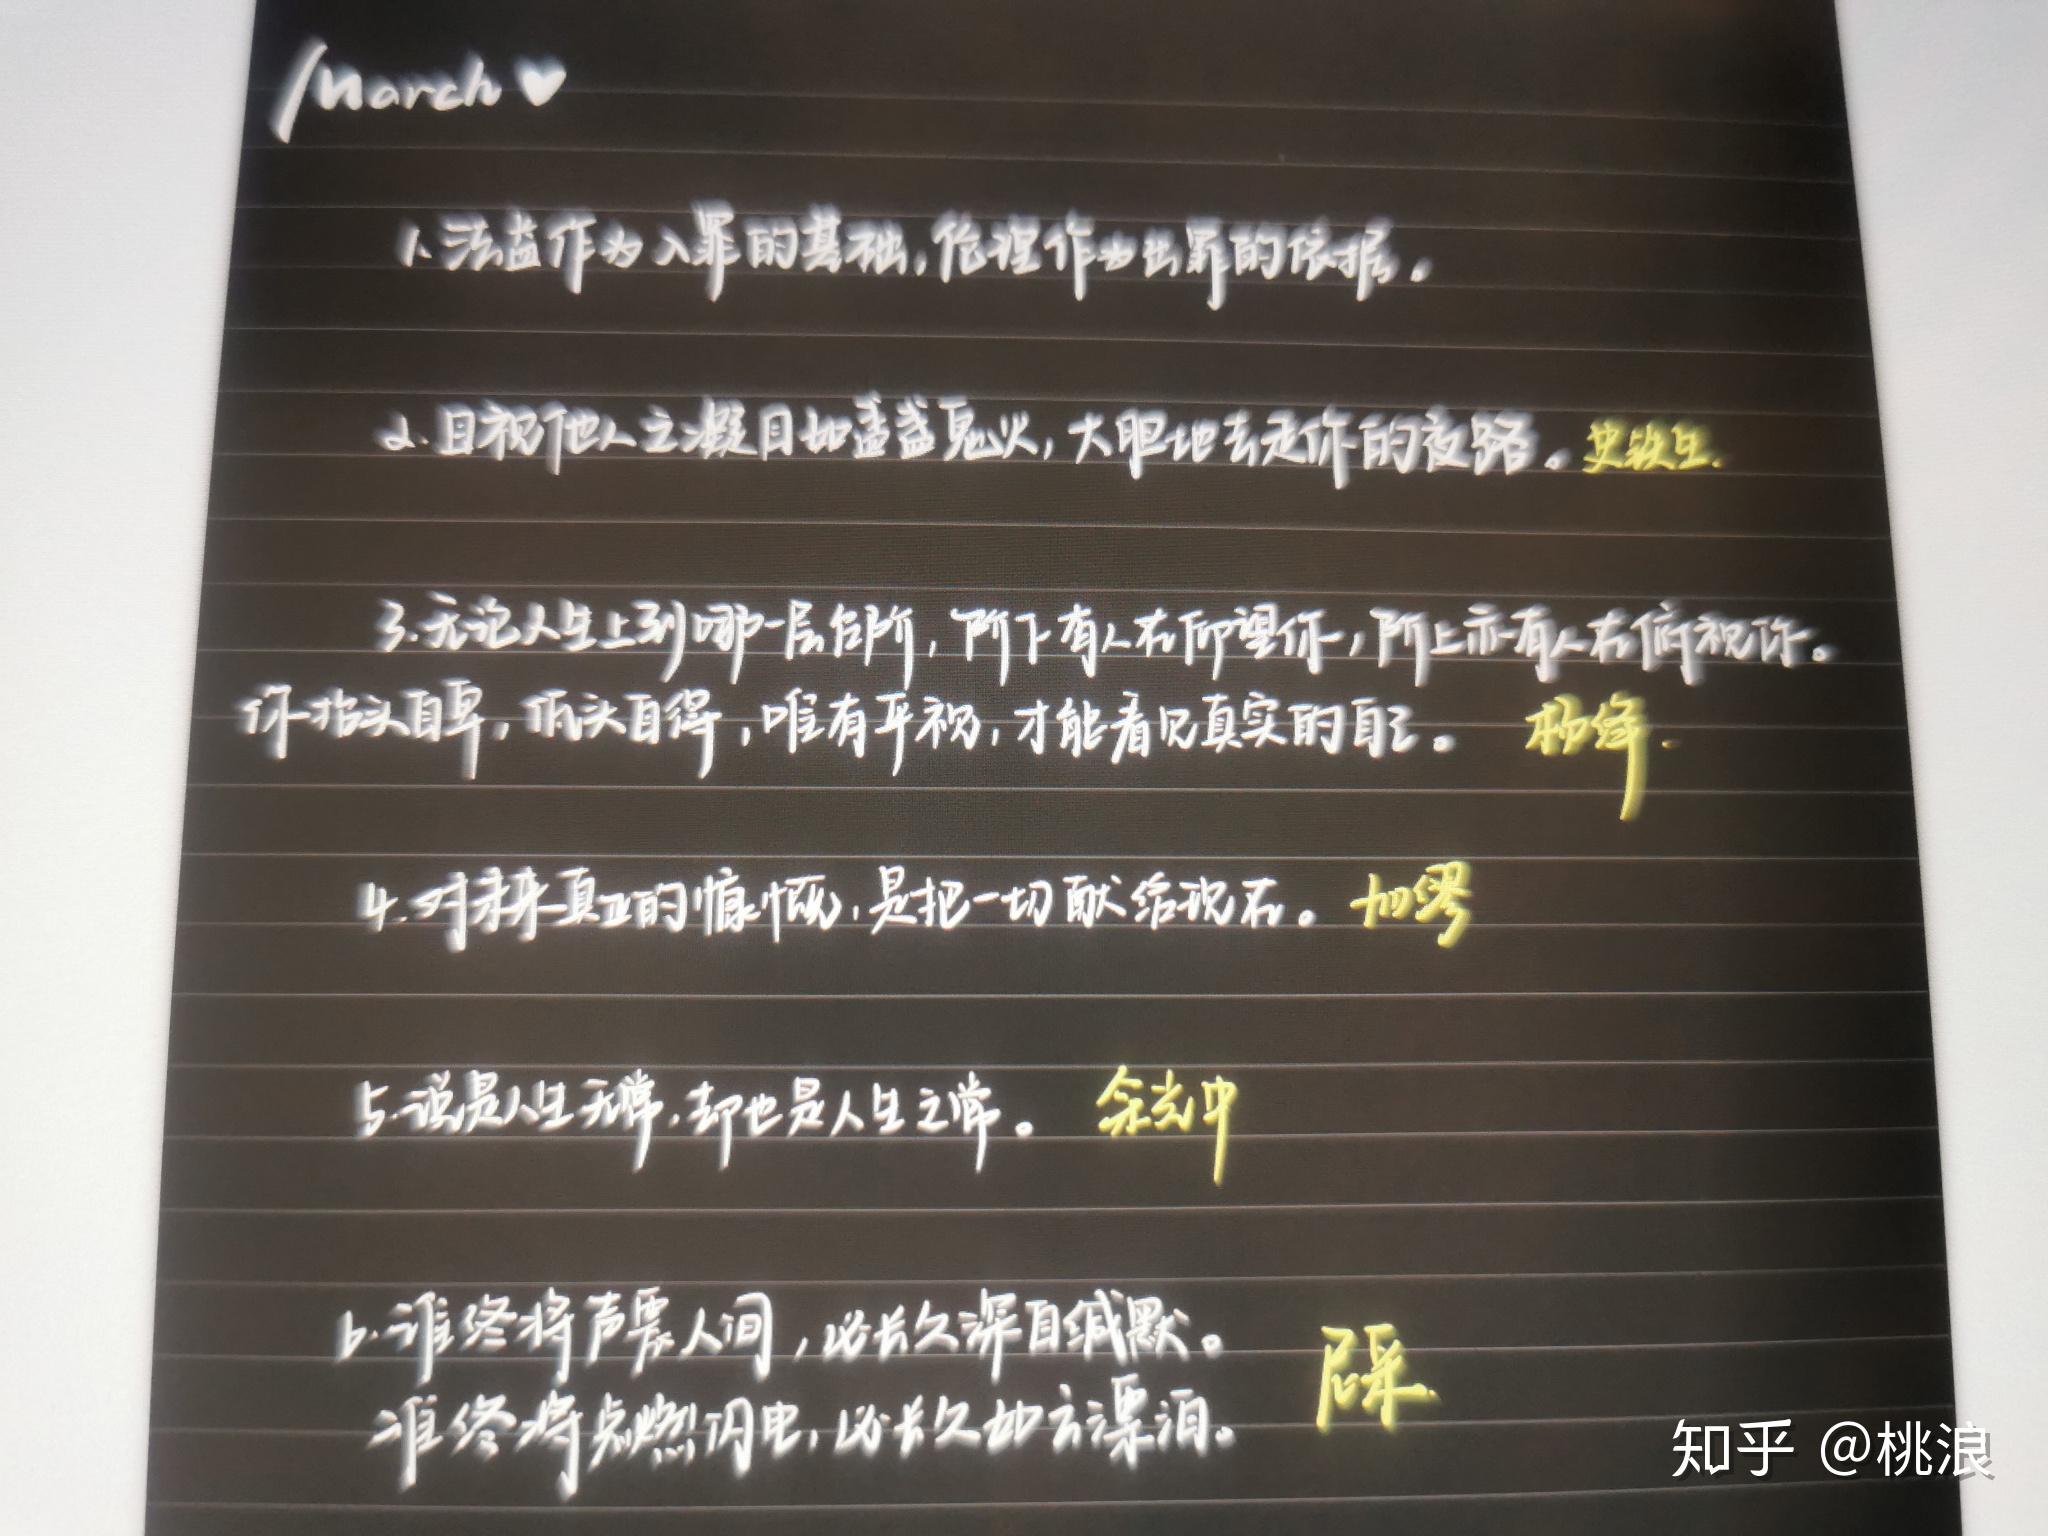 March♥
1.法益作为入罪的基础,伦理作为出罪的依据。
2.目视他人之凝目如盏盏鬼火,大胆地去走你的夜路。史铁生.
3.无论人生上到哪一层台阶,阶下有人在仰望你,阶上亦有人在俯视你。
你抬头自卑,低头自得,唯有平视,才能看见真实的自己。杨绛.
4.对未来真正的慷慨,是把一切献给现在。加缪
5.说是人生无常,却也是人生之常。余光中
6.谁终将声震人间,必长久深自缄默。
谁终将点燃闪电,必长久如云漂泊。
尼采.
知乎 @桃浪